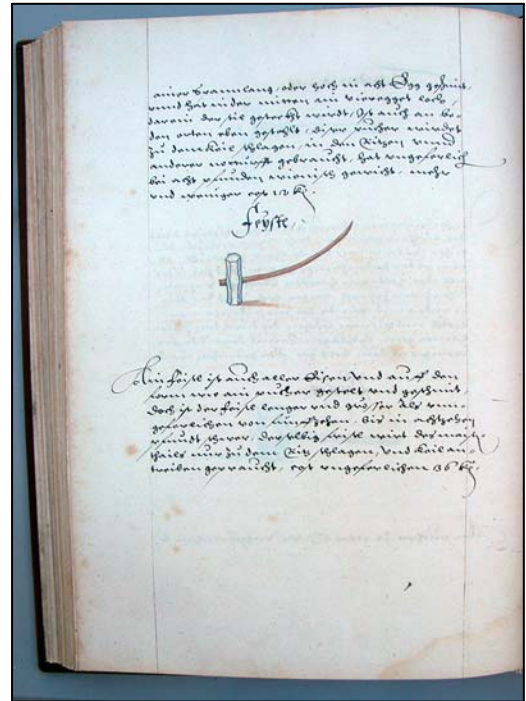 ainer Spannlang, oder hoch in acht Egg geschmit,
vnnd hat in der mitten ain vieregget loch,
darein der stil gesteckt wirdt, Ist auch an be-
den orten eben gestehlt, diser pucher wirdet
zu dem keil schlagen, in den Ritzen vnnd
anderer notturfft gebraucht, hat vngeferlich
bei acht pfunden wienisch gewicht, mehr
vnd weniger cost 12 kr.
Feystl,
Ain feistl ist auch aller Eisen vnd auff den
form wie ain pucher gestelt vnd geschmit,
doch ist der feistl lenger vnd grösser Als vnn-
geferlichen von funffzehen, bis in achtzehen
pfundt schwer, derselbig feistl wirt des maist-
thails nur zu dem Ritz schlagen, vnd keil an-
treiben gepraucht, cost vngeferlichen 36 kr.